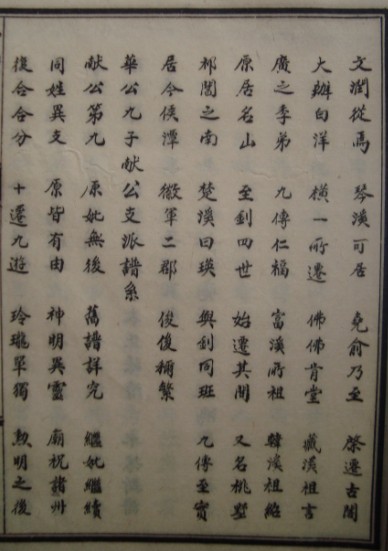 文潤從焉 琴溪可居 堯俞乃至 榮遷古閶
大辦白洋 横一所遷 佛佛肯堂 藏溪祖言
廣之季弟 九傳仁福 富溪所祖 韓溪祖紹
原居名山 至釗四世 始遷其間 又名桃墅
祁閶之南 楚溪曰瑛 與釗同班 九傳至寶
居今侯潭 徽軍二郡 俊復稱繁
華公九子献公支派譜系
献公第九 原妣無後 舊譜詳究 繼妣繼續
同姓異支 原皆有由 神明異靈 廟祝諸州
復合合分 十遷九遊 玲瓏單獨 勲明之後